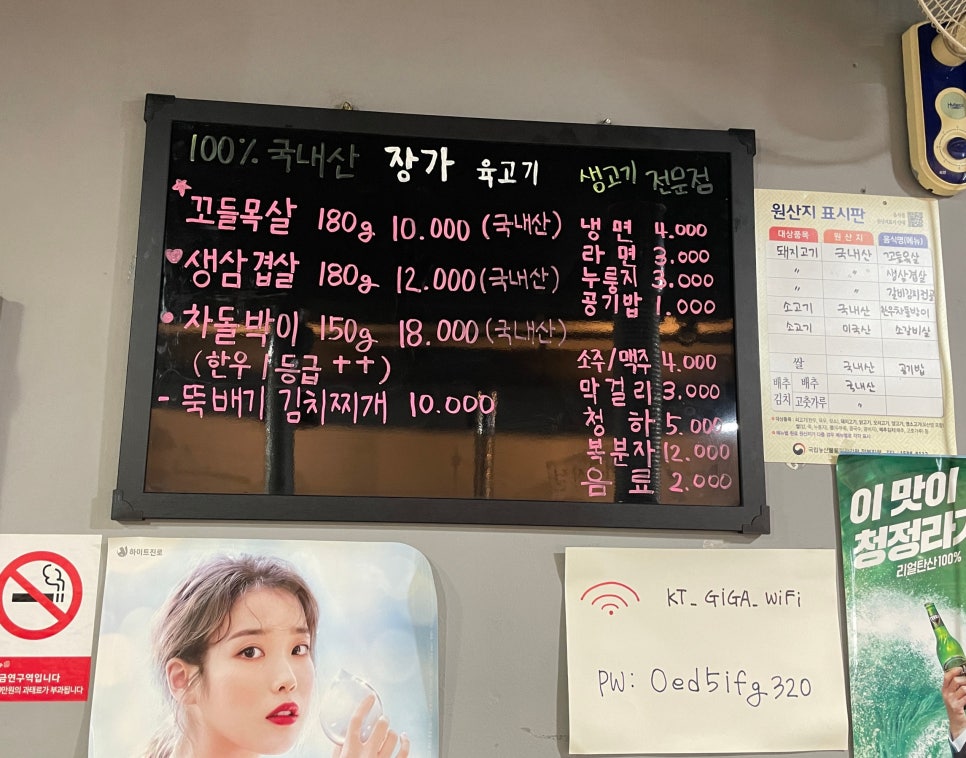 100% 국내산 장가 육고기 생고기 전문점
꼬들목살 180g 10.000 (국내산)
생삼겹살 180g 12.000 (국내산)
차돌박이 150g 18.000 (국내산)
(한우 1등급 ++)
- 뚝배기 김치찌개 10.000
냉면 4.000
라면 3.000
누룽지 3.000
공기밥 1.000
소주/맥주 4.000
막걸리 3.000
청하 5.000
복분자 12.000
음료 2.000
원산지 표시판
대상품목 원산지 음식명(메뉴)
돼지고기 국내산 꼬들목살
〃 〃 생삼겹살
〃 〃
소고기 국내산 한우차돌박이
소고기 미국산 소갈비살
쌀 국내산 공기밥
배추김치 배추 국내산
고춧가루 〃
국립농산물품질관리원
금연구역입니다
만원의 과태료가 부과됩니다
하이트진로
KT_GiGA_WiFi
PW: 0ed5ifg320
이 맛이
청정라거
리얼탄산100%